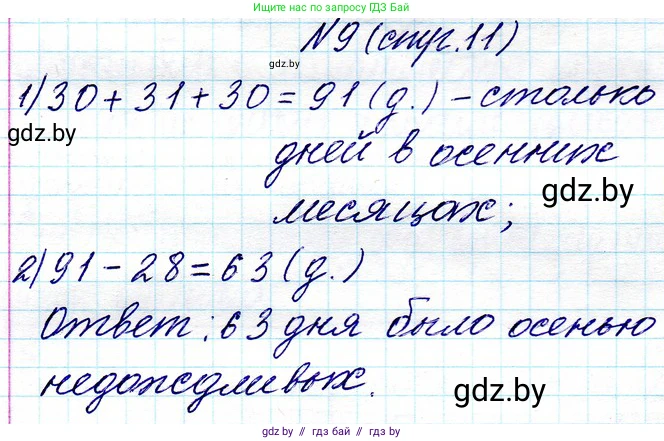 Решения по разным предметам на сайте ГДЗ Бай
N 9 (стр. 11)
1) 30 + 31 + 30 = 91 (д.) - столько
gdz.by
дней в осенних
gdz.by
месяцах;
2) 91 - 28 = 63 (д.)
Ответ: 63 дня было осенью
недождливых.
gdz.by
gdz.by // гдз бай // гдз by